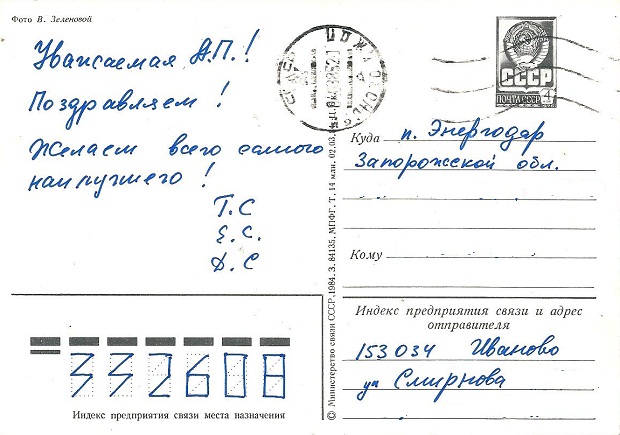 Фото В. Зеленовой
Уважаемая А.П.!
Поздравляем!
Желаем всего самого
наилучшего!
Т.С
Е.С.
Д.С
СССР
ПОЧТА СССР 4
Куда п. Энергодар
Запорожской обл.
Кому
Индекс предприятия связи и адрес
отправителя
153034 Иваново
ул Смирнова
332608
Индекс предприятия связи места назначения
© Министерство связи СССР. 1984. З. 84135, МПФГ. Т. 14 млн. 02.03.